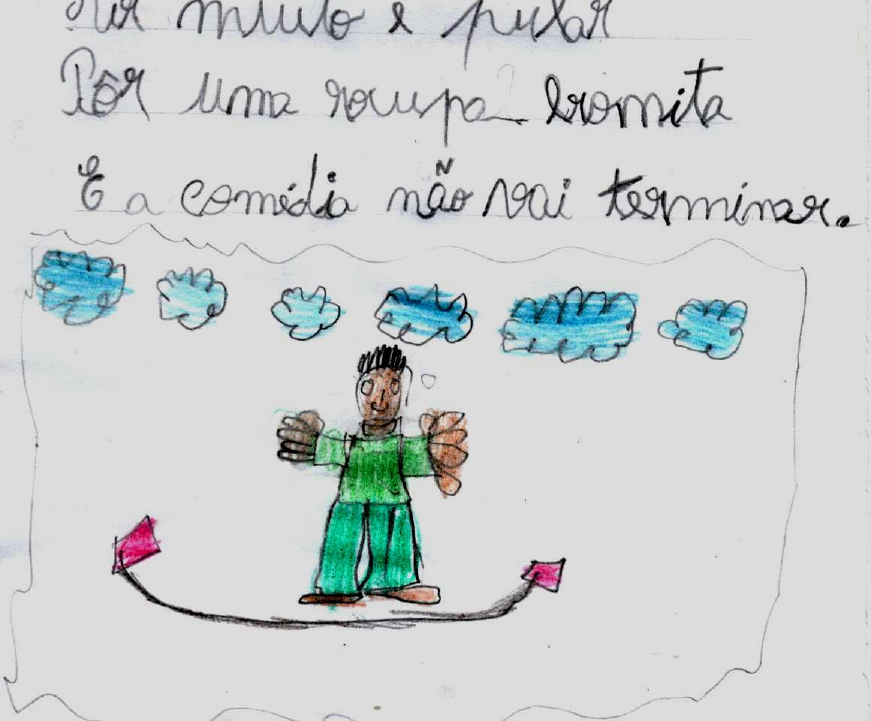 Rir muito e pular
Pôr uma roupa bonita
E a comédia não vai terminar.